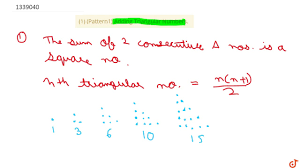 1339040
(1) (Pattern)
① The sum of 2 consecutive Δ nos. is a
square no.
nth triangular no. = n(n+1)/2
1 3 6 10 15